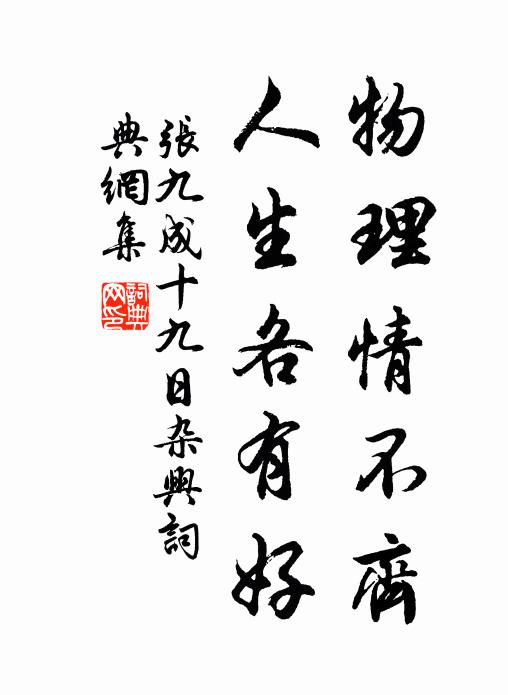 物理情不齊
人生各有好
張九成十九日杂興詞
典網集
詞典
网印